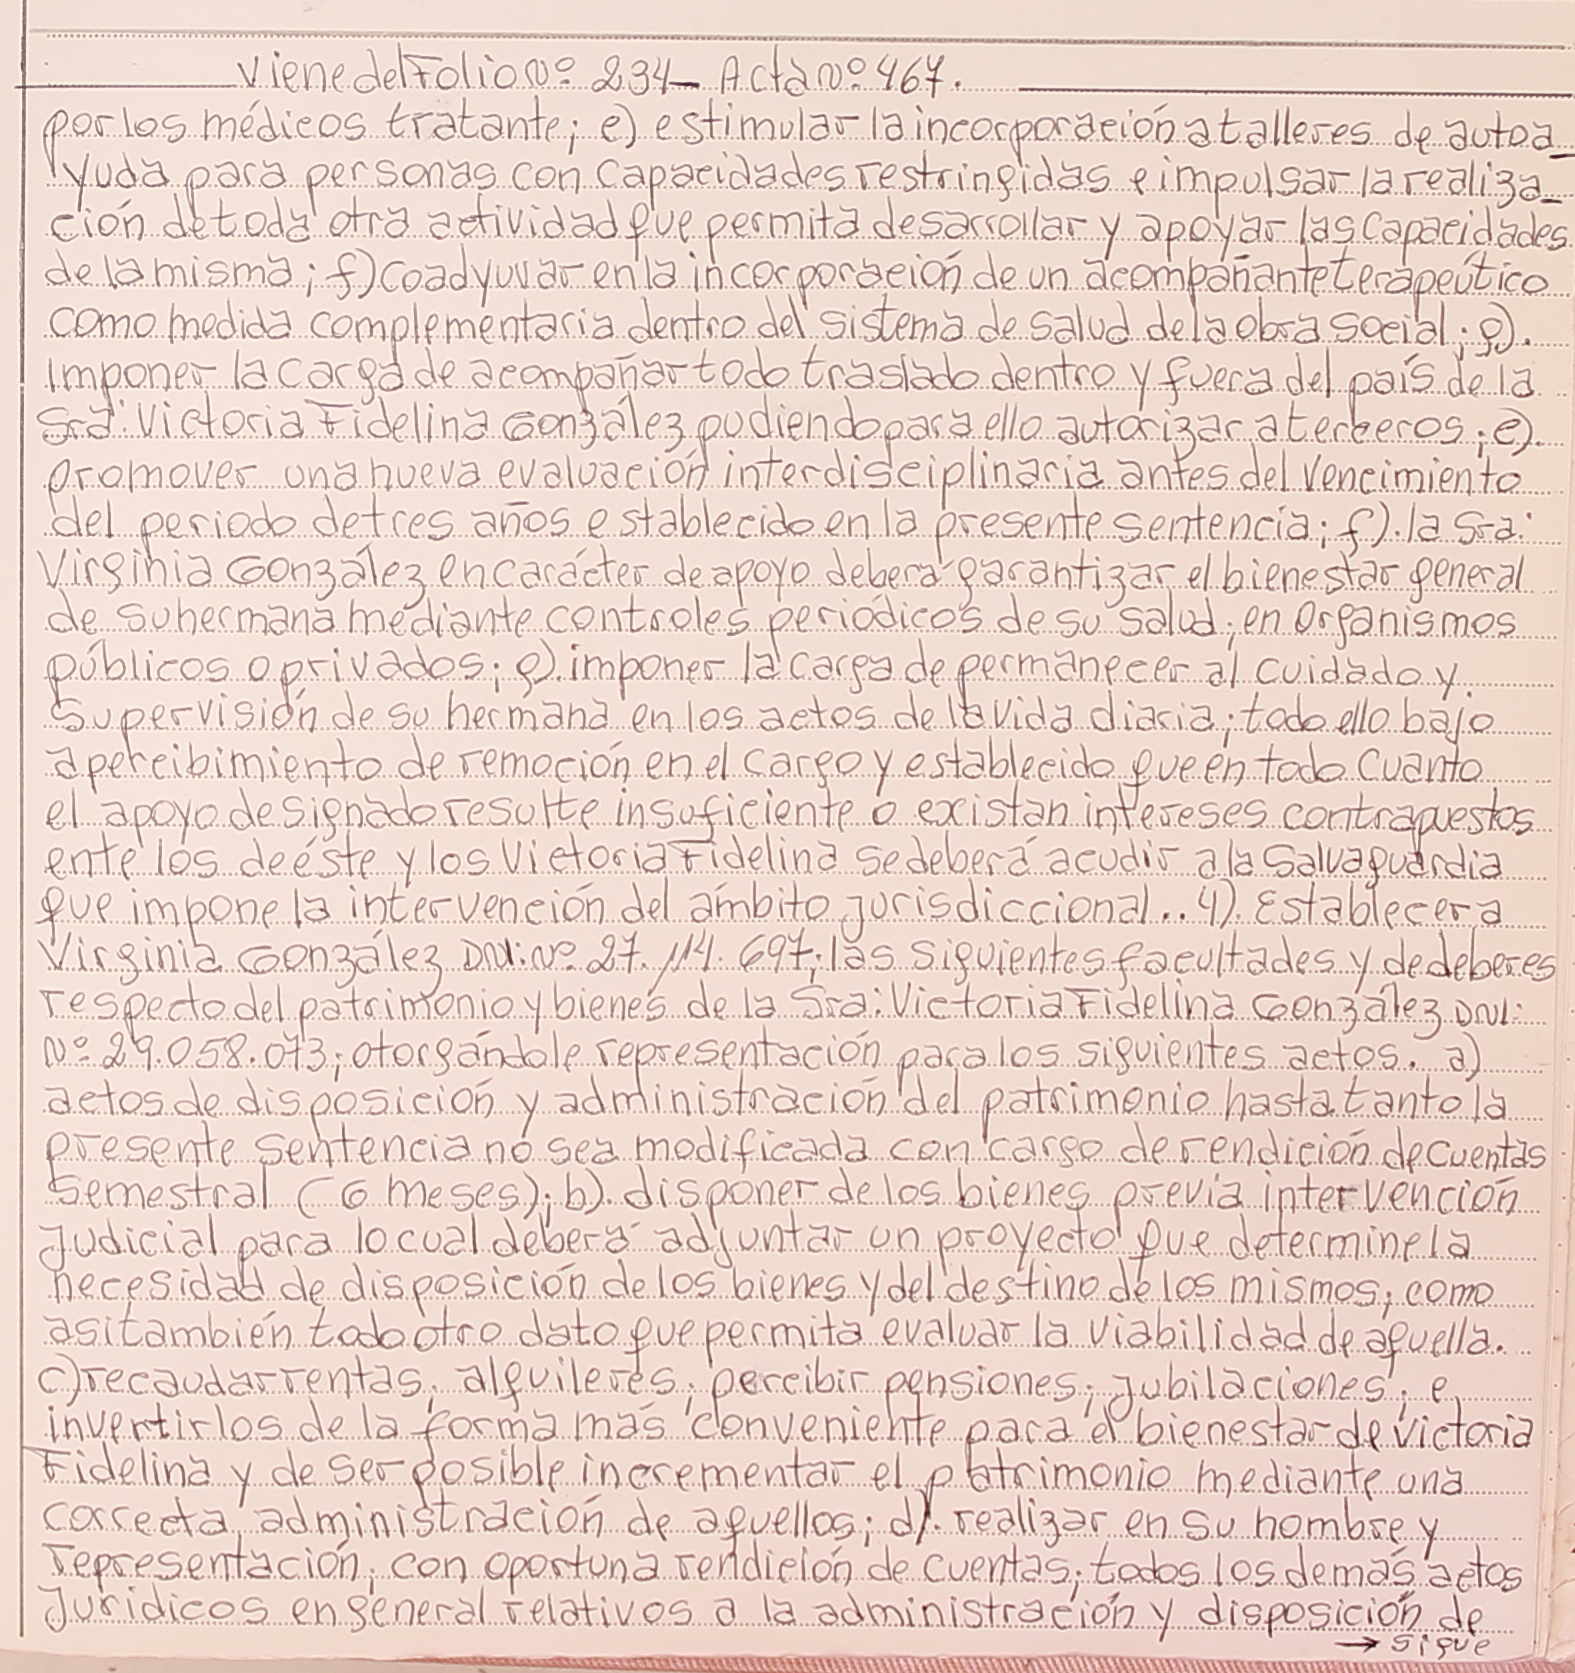 Viene del Folio Nº 234 - Acta Nº 467.
por los médicos tratante; e) estimular la incorporación a talleres de autoa_
yuda para personas con capacidades restringidas e impulsar la realiza_
ción de toda otra actividad que permita desarrollar y apoyar las capacidades
de la misma; f) Coadyuvar en la incorporación de un acompañante terapeútico
como medida complementaria dentro del sistema de salud de la obra social; g).
Imponer la carga de acompañar todo traslado dentro y fuera del país de la
Sra: Victoria Fidelina González pudiendo para ello autorizar a terceros; e).
promover una nueva evaluación interdisciplinaria antes del vencimiento
del periodo de tres años establecido en la presente sentencia; f). la Sra:
Virginia González en carácter de apoyo deberá garantizar el bienestar general
de su hermana mediante controles periódicos de su salud; en Organismos
públicos o privados; g). imponer la carga de permanecer al cuidado y
Supervisión de su hermana en los actos de la vida diaria; todo ello bajo
apercibimiento de remoción en el cargo y establecido que en todo cuanto
el apoyo designado resulte insuficiente o existan intereses contrapuestos
ente los de éste y los Victoria Fidelina se deberá acudir a la Salvaguardia
que impone la intervención del ámbito jurisdiccional.. 4). Establecer a
Virginia González DNI: Nº 27.114.697; las siguientes facultades y de deberes
respecto del patrimonio y bienes de la Sra: Victoria Fidelina González DNI:
Nº 29.058.073; otorgándole representación para los siguientes actos. a)
actos de disposición y administración del patrimonio hasta tanto la
presente sentencia no sea modificada con cargo de rendición de cuentas
Semestral (6 meses); b). disponer de los bienes previa intervención
Judicial para lo cual deberá adjuntar un proyecto que determine la
necesidad de disposición de los bienes y del destino de los mismos; como
asi también todo otro dato que permita evaluar la viabilidad de aquella.
c) recaudar rentas; alquileres; percibir pensiones; jubilaciones; e
invertirlos de la forma más conveniente para el bienestar de Victoria
Fidelina y de ser posible incrementar el patrimonio mediante una
correcta administración de aquellos; d). realizar en su nombre y
representación; con oportuna rendición de cuentas; todos los demás actos
Jurídicos en general relativos a la administración y disposición de
→ sigue